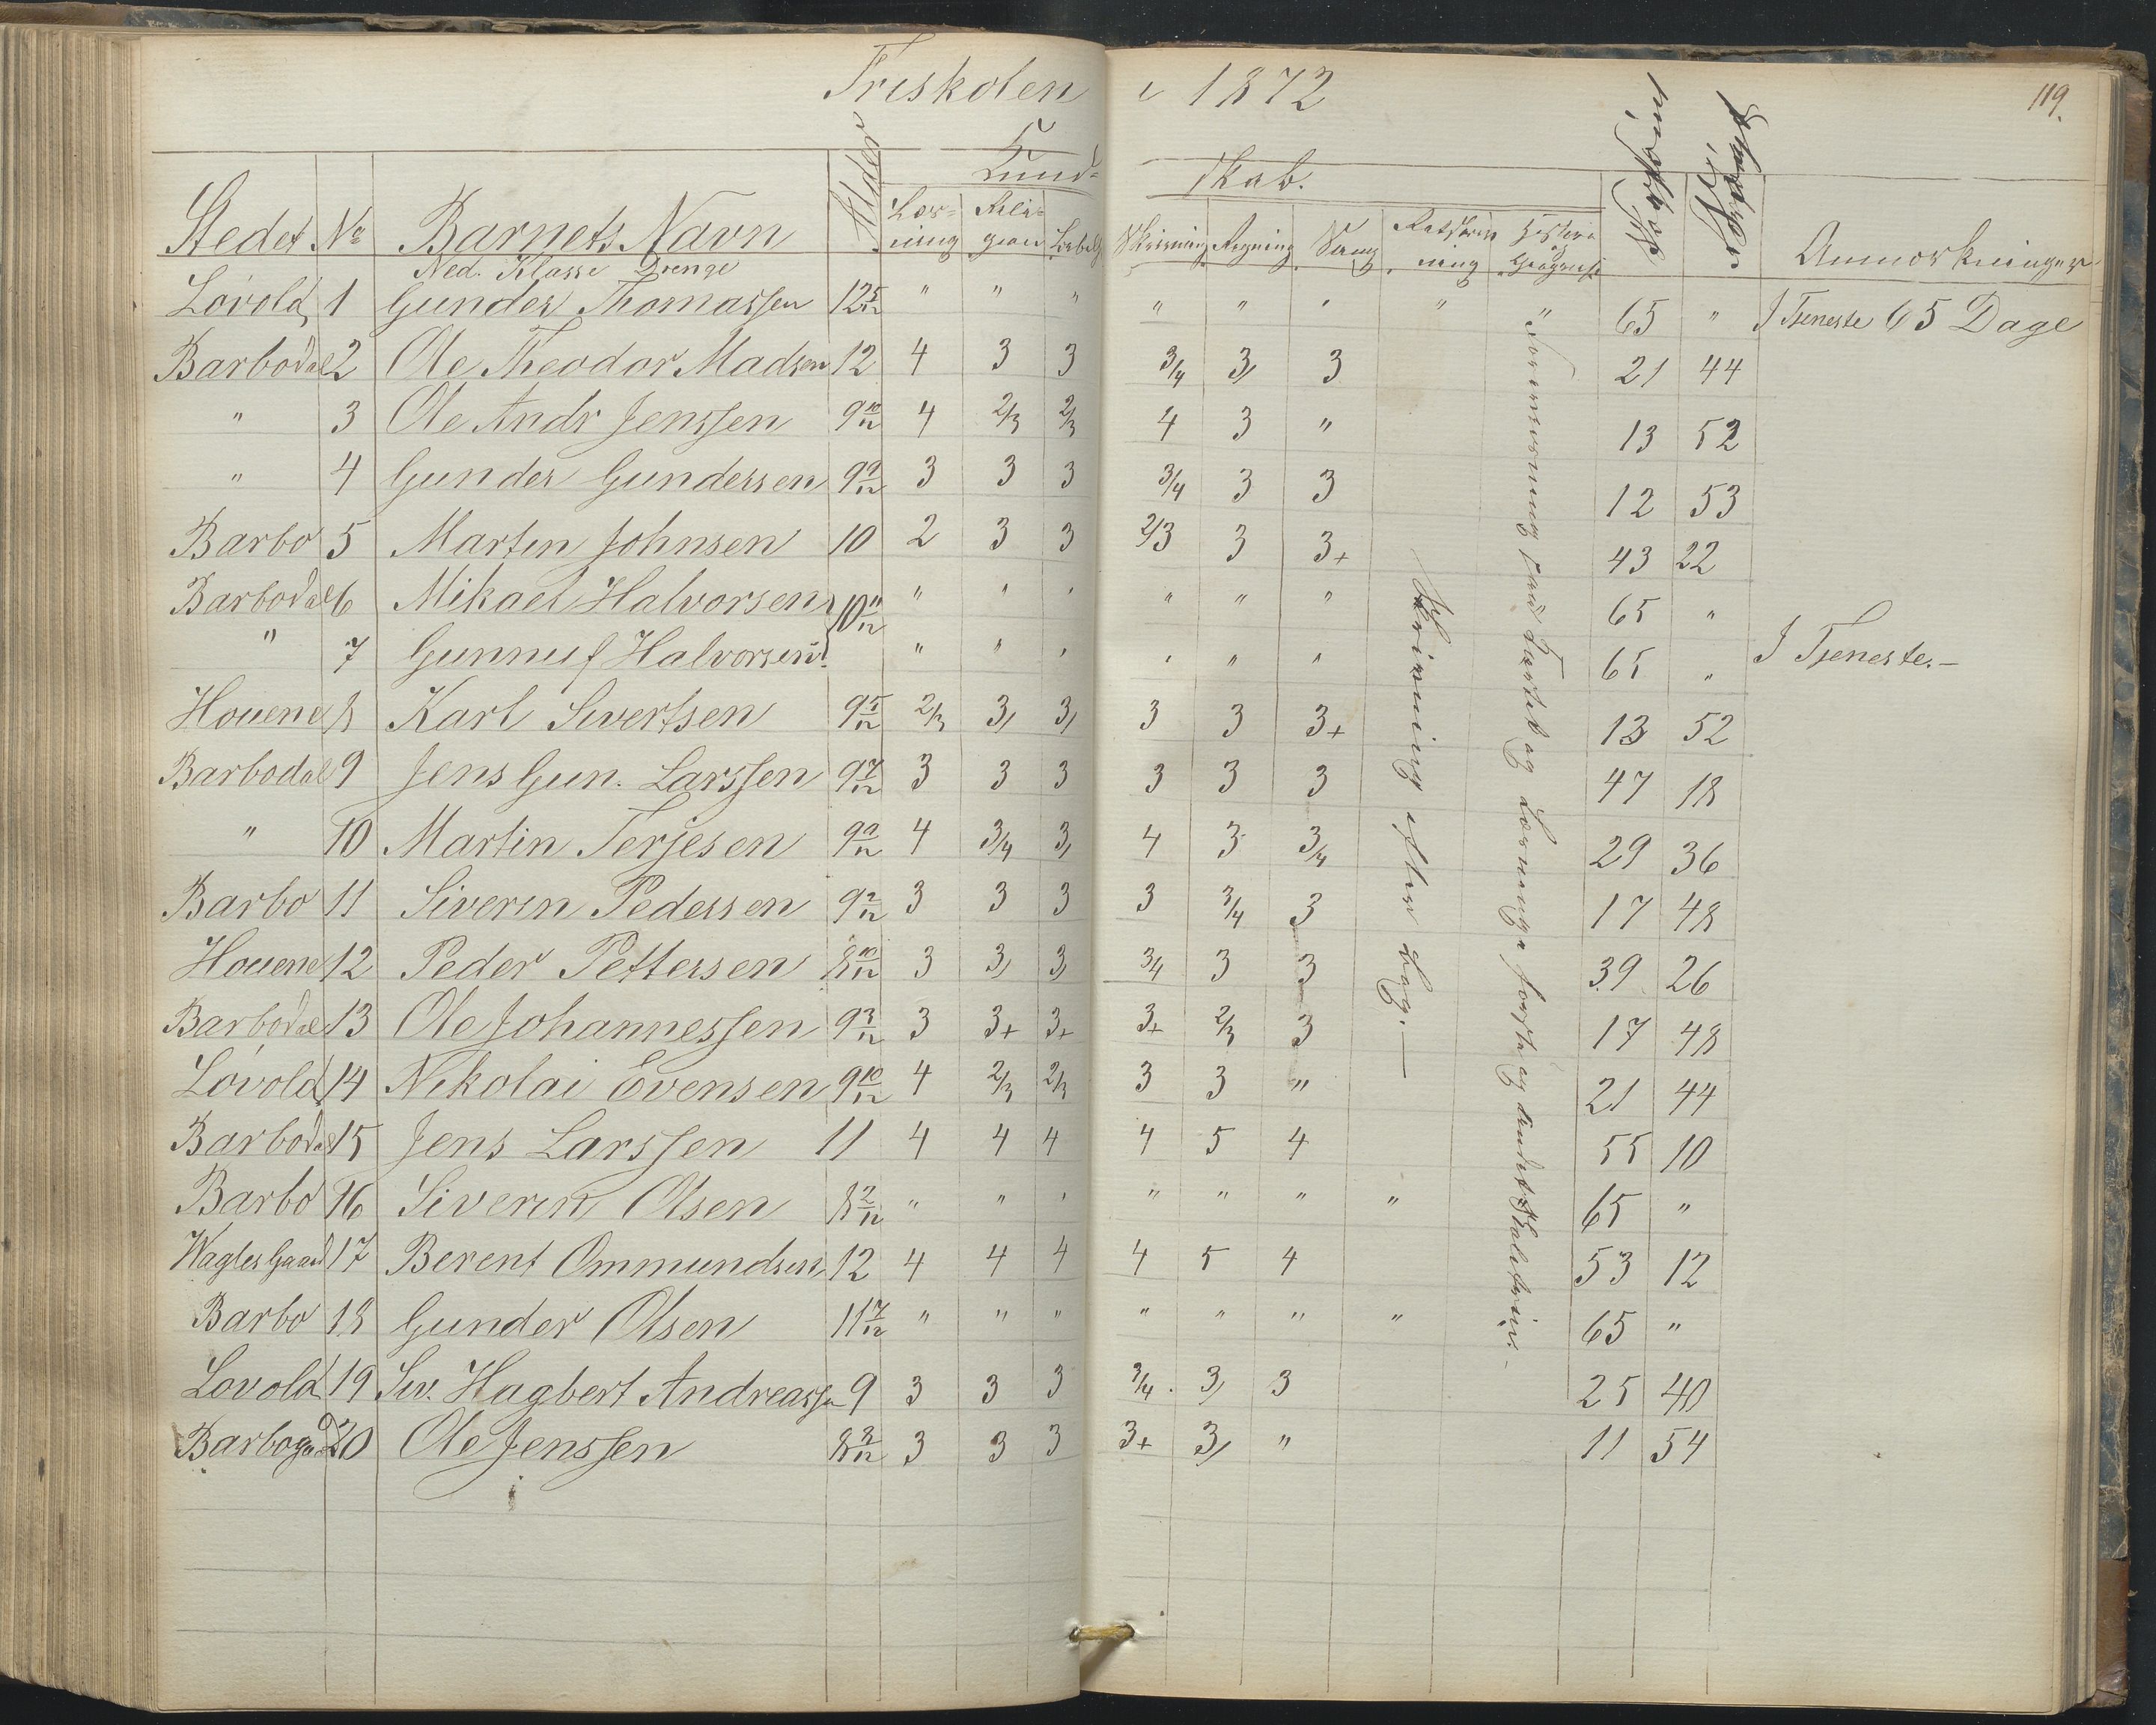 Friskolen i 1872
119.
Stedet No Barnets Navn Alder Kund= skab.
Læs= ning Religion Skrivning Regning Sang Retskriv= ning Historie og Geografi Forsømt Anmærkninger
Ned. Klasse Drenge
Lövold 1 Gunder Thomassen 12 5/12 " " " " " " " " 65 " I Tjeneste 65 Dage
Barbodal 2 Ole Theodor Madsen 12 4 3 3 3/4 3/ 3 21 44
" 3 Ole Andr Jenssen 9 10/12 4 2/3 2/3 4 3 " 13 52
" 4 Gunder Gundersen 9 9/12 3 3 3 3/4 3 3 12 53
Barbo 5 Martin Johnsen 10 2 3 3 2/3 3 3+ 43 22
Barbodal 6 Mikael Halvorsen 10 11/12 " " " " " " 65 "
" 7 Gunnuf Halvorsen " " " " " " 65 " I Tjeneste.—
Houene 8 Karl Sivertsen 9 5/12 2/3 3/ 3/ 3 3 3+ 13 52
Barbodal 9 Jens Gun. Larssen 9 7/12 3 3 3 3 3 3 47 18
" 10 Martin Terjesen 9 9/12 4 3/4 3/ 4 3 3/4 29 36
Barbo 11 Siverin Pedersen 9 2/12 3 3 3 3 3/4 3 17 48
Houene 12 Peder Pettersen 8 10/12 3 3/ 3/ 3/4 3 3 39 26
Barbodal 13 Ole Johannessen 9 3/12 3 3+ 3+ 3+ 2/3 3 17 48
Lövold 14 Nikolai Evensen 9 10/12 4 2/3 2/3 3 3 " 21 44
Barbodal 15 Jens Larssen 11 4 4 4 4 5 4 55 10
Barbo 16 Siverin Olsen 8 2/12 " " " " " " " 65 "
Wagles Gaard 17 Berent Ommundsen 12 4 4 4 4 5 4 53 12
Barbo 18 Gunder Olsen 11 7/12 " " " " " " " 65 "
Lovold 19 Siv. Hagbert Andreassen 9 3 3 3 3/4 3/ 3 25 40
Barbogaard 20 Ole Jenssen 8 8/12 3 3 3 3+ 3/ " 11 54
Skrivning efter Bog.—